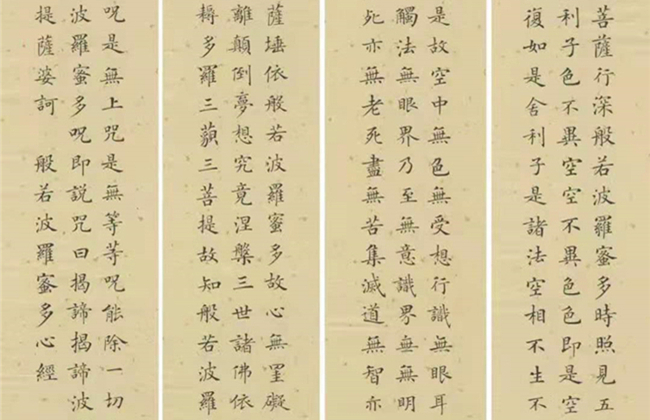 菩薩行深般若波羅蜜多時照見五
利子色不異空空不異色色即是空
復如是舍利子是諸法空相不生不
是故空中無色無受想行識無眼耳
觸法無眼界乃至無意識界無無明
死亦無老死盡無苦集滅道無智亦
薩埵依般若波羅蜜多故心無罣礙
離顛倒夢想究竟涅槃三世諸佛依
耨多羅三藐三菩提故知般若波羅
呪是無上咒是無等等呪能除一切
波羅蜜多呪即説咒曰揭諦揭諦波
提薩婆訶 般若波羅蜜多心經